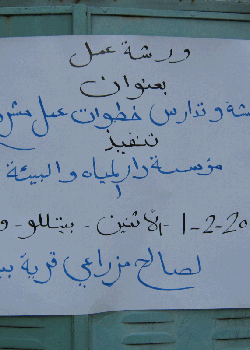 ورشة عمل
بعنوان
وتدارس خطوات عمل مشر
تنفيذ
مؤسسة دار المياه والبيئة
1-2-20 - الاثنين - بيتللو - و
لصالح مزارعي قرية بي